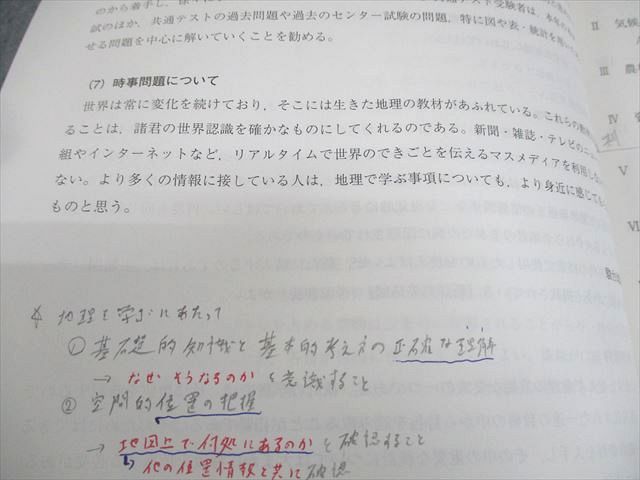 試のほか,共通テストの過去問題や過去のセンター試験の問題,特に図や表・統計を
せる問題を中心に解いていくことを勧める。
(7) 時事問題について
世界は常に変化を続けており,そこには生きた地理の教材があふれている。これらの
ることは,諸君の世界認識を確かなものにしてくれるのである。新聞・雑誌・テレビの
組やインターネットなど,リアルタイムで世界のできごとを伝えるマスメディアを利用し
ない。より多くの情報に接している人は,地理で学ぶ事項についても,より身近に感じ
ものと思う。
☆ 地理を学ぶにあたって
① 基礎的知識と基本的考え方の正確な理解
→ なぜそうなるのかを意識すること
② 空間的位置の把握
→ 地図上で何処にあるのかを確認すること
↳ 他の位置情報と共に確認
Ⅱ 気候
Ⅲ 農
Ⅳ
Ⅴ
Ⅵ